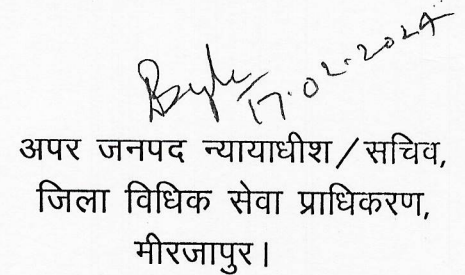 17.02.2024
अपर जनपद न्यायाधीश/सचिव,
जिला विधिक सेवा प्राधिकरण,
मीरजापुर।